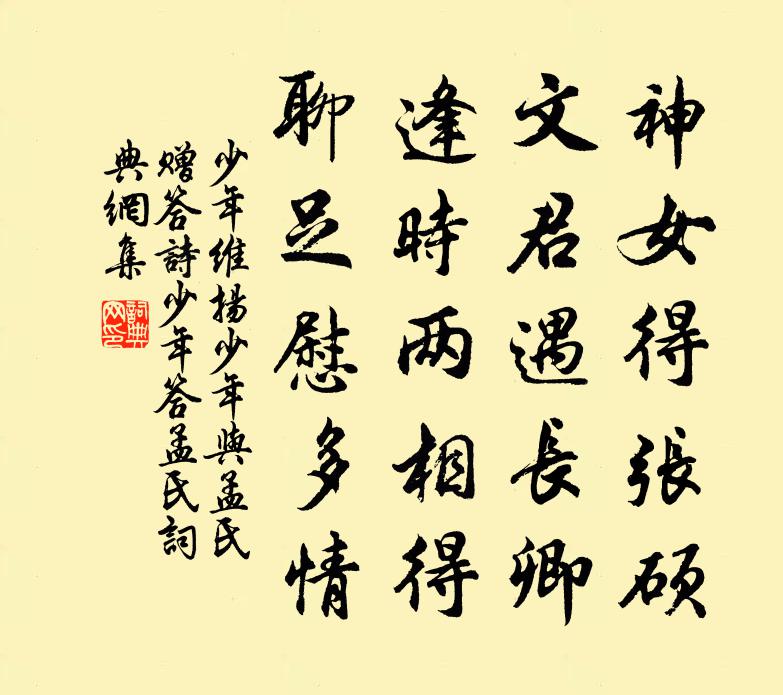 神女得張硕
文君遇長卿
逢時两相得
聊足慰多情
少年維揚少年與孟氏
贈答詩少年答孟氏詞
典網集
詞典
网印